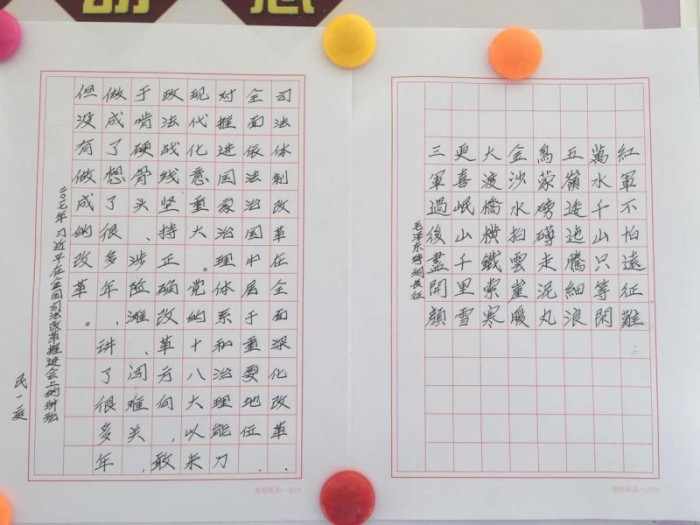 紅軍不怕遠征難
萬水千山只等閑
五嶺逶迤騰細浪
烏蒙磅礴走泥丸
金沙水拍雲崖暖
大渡橋橫鐵索寒
更喜岷山千里雪
三軍過後盡開顏
毛泽东诗词长征
司法体制改革在全面深化改革、
全面依法治国中居于重要地位,
对推进国家治理体系和治理能力
现代化意重大。党的十八大以来,
政法战线坚持正确改革方向,敢
于啃硬骨头、涉险滩、闯难关,
做成了想了很多年、讲了很多年
但没有做成的改革。
二〇一七年习近平在全国司法改革推进会上的讲话
民一庭